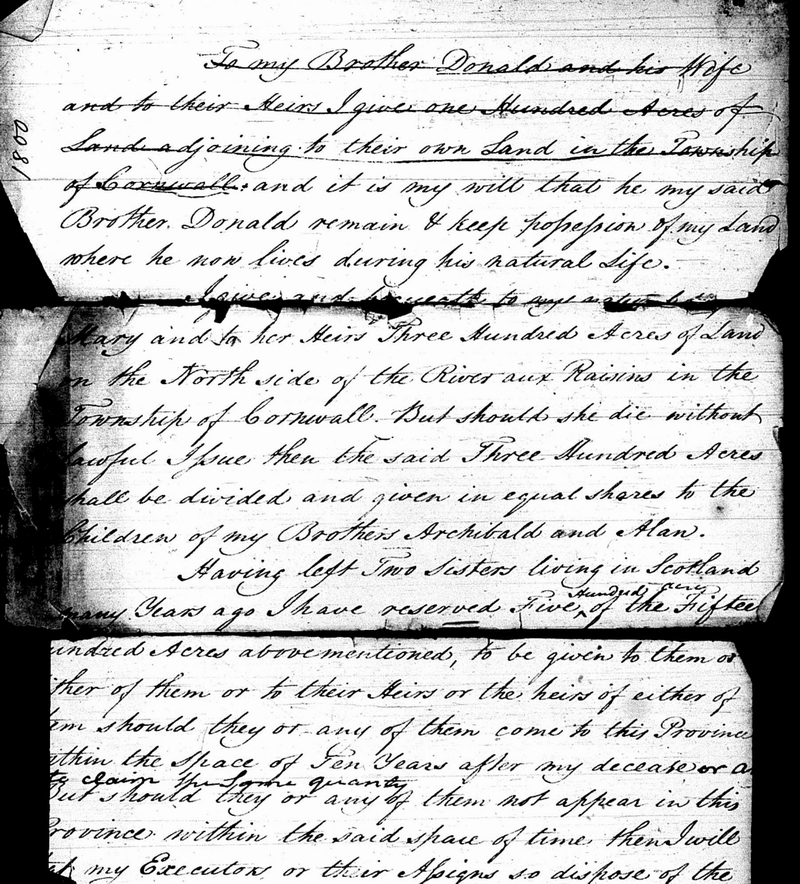 To my Brother Donald and his Wife
and to their Heirs I give one Hundred Acres of
Land adjoining to their own Land in the Township
of Cornwall. and it is my will that he my said
Brother Donald remain & keep possession of my Land
where he now lives during his natural Life.
I give and bequeath to my
Mary and to her Heirs Three Hundred Acres of Land
on the North side of the River aux Raisins in the
Township of Cornwall. But should she die without
lawful Issue then the said Three Hundred Acres
shall be divided and given in equal shares to the
Children of my Brothers Archibald and Alan.
Having left Two Sisters living in Scotland
Hundred acres
many Years ago I have reserved Five of the Fifteen
undred Acres abovementioned, to be given to them or
ither of them or to their Heirs or the heirs of either of
em should they or any of them come to this Province
ithin the Space of Ten Years after my decease or a
to claim the Same
But should they or any of them not appear in this
Province within the said space of time then I will
my Executors or their Assigns so dispose of the
1800